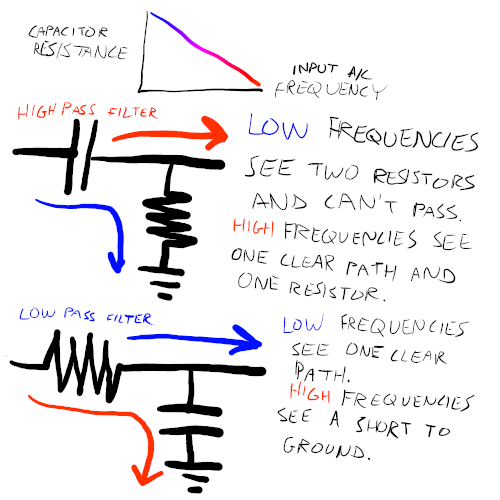 CAPACITOR
RESISTANCE
INPUT A/C
FREQUENCY
HIGH PASS FILTER
LOW FREQUENCIES
SEE TWO RESISTORS
AND CAN'T PASS.
HIGH FREQUENCIES SEE
ONE CLEAR PATH AND
ONE RESISTOR.
LOW PASS FILTER
LOW FREQUENCIES
SEE ONE CLEAR
PATH.
HIGH FREQUENCIES
SEE A SHORT TO
GROUND.